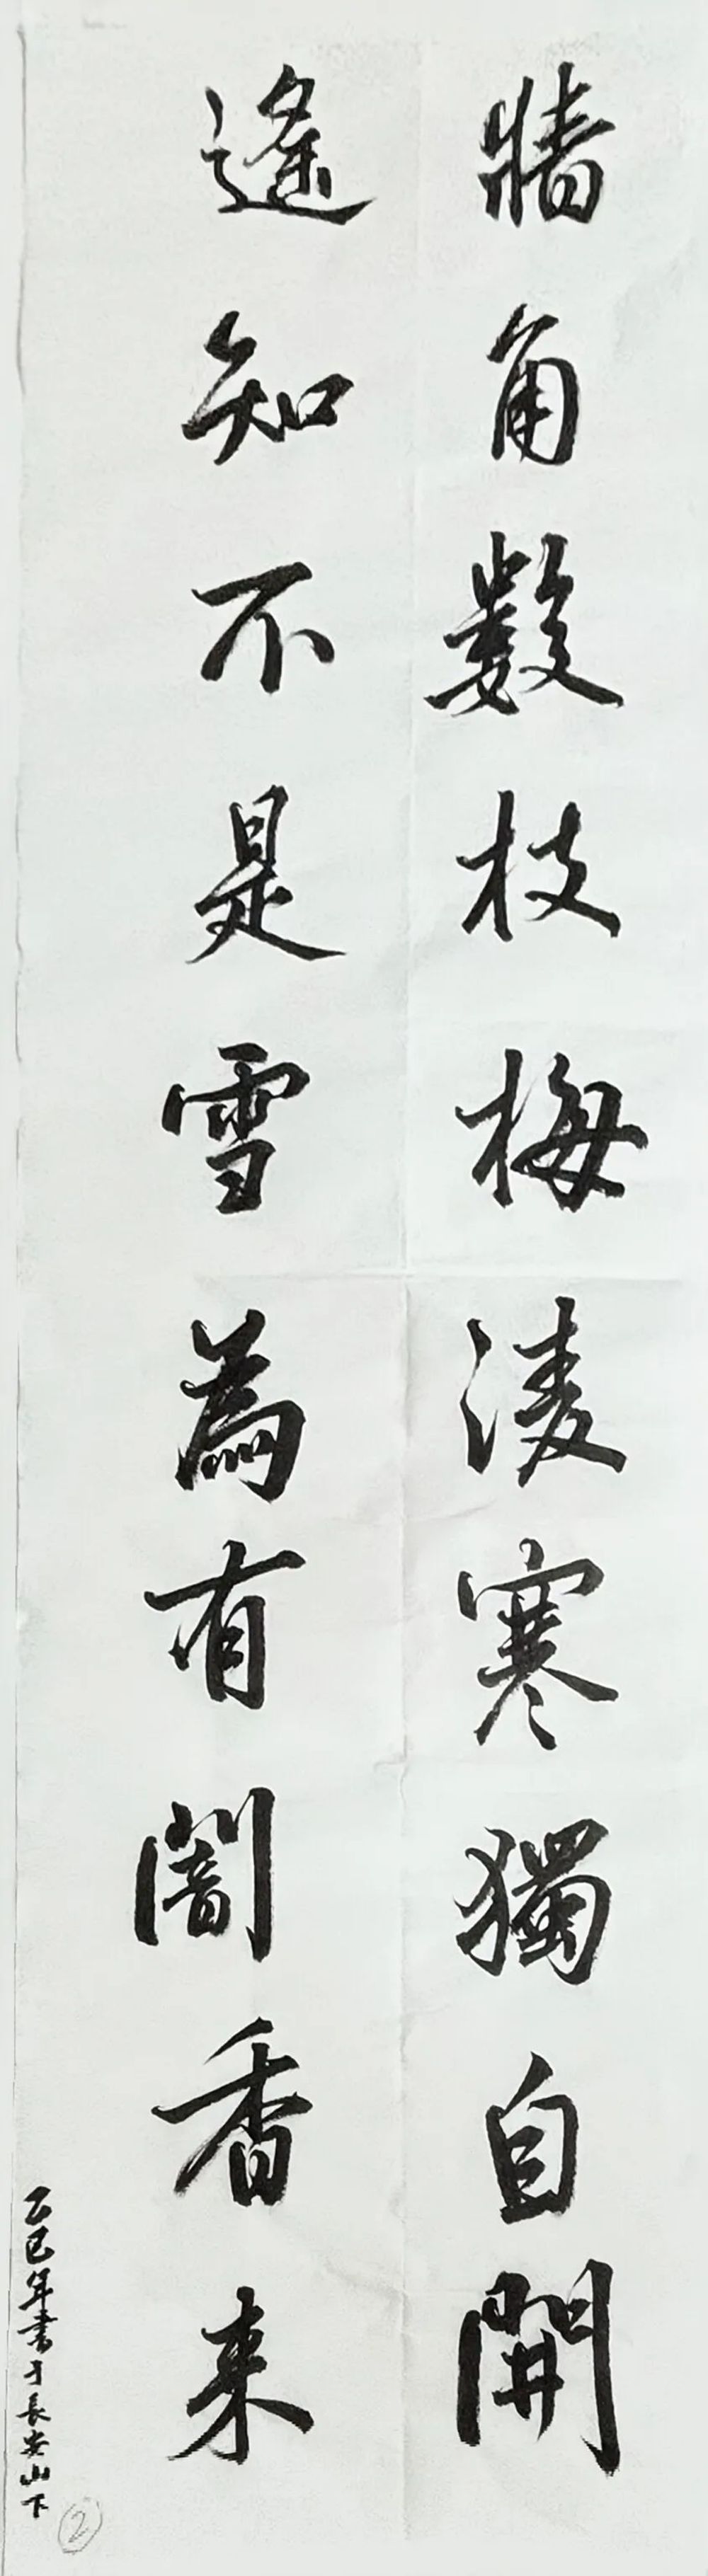 牆角數枝梅淩寒獨自開
遙知不是雪為有闇香来
乙巳年書于長安山下
2